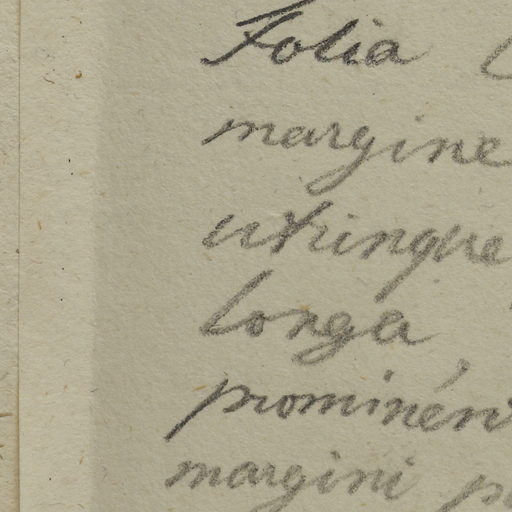 Folia
margine
utrinque
longa,
prominéri
margini p